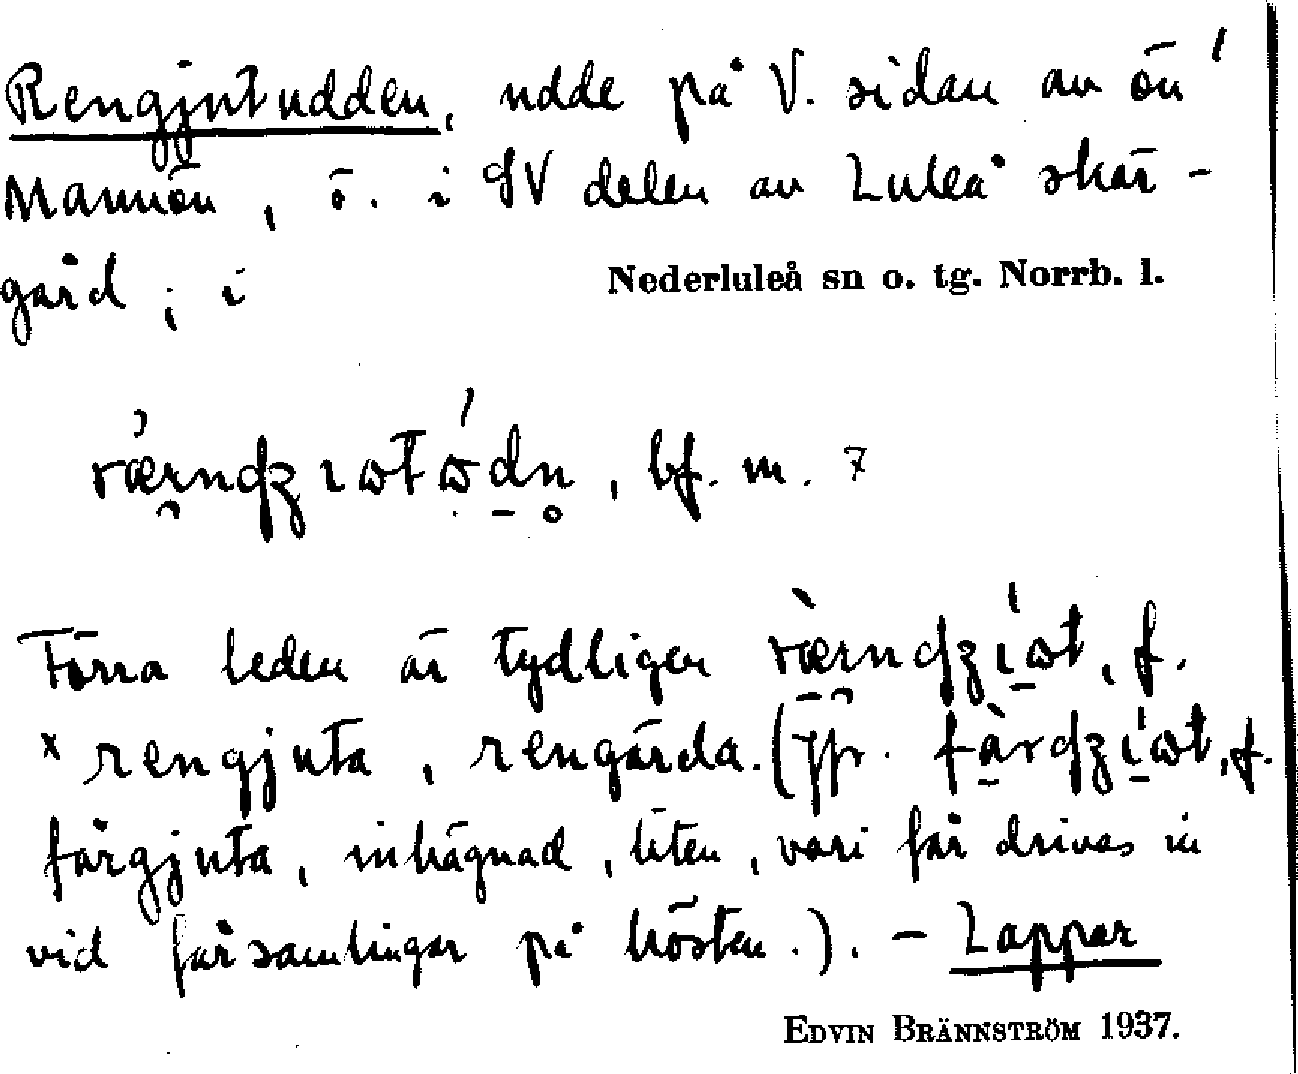 Rengjutudden, udde på V. sidan av ön
Mannön, ö. i SV delen av Luleå skär-
gård; i Nederluleå sn o. tg. Norrb. l.
, bf. m.
Förra leden är tydligen , f.
×rengjuta, rengärda. (Jfr. , f.
fårgjuta, inhägnad, liten, vari får drivas in
vid fårsamlingar på hösten.). – Lappar
EDVIN BRÄNNSTRÖM 1937.